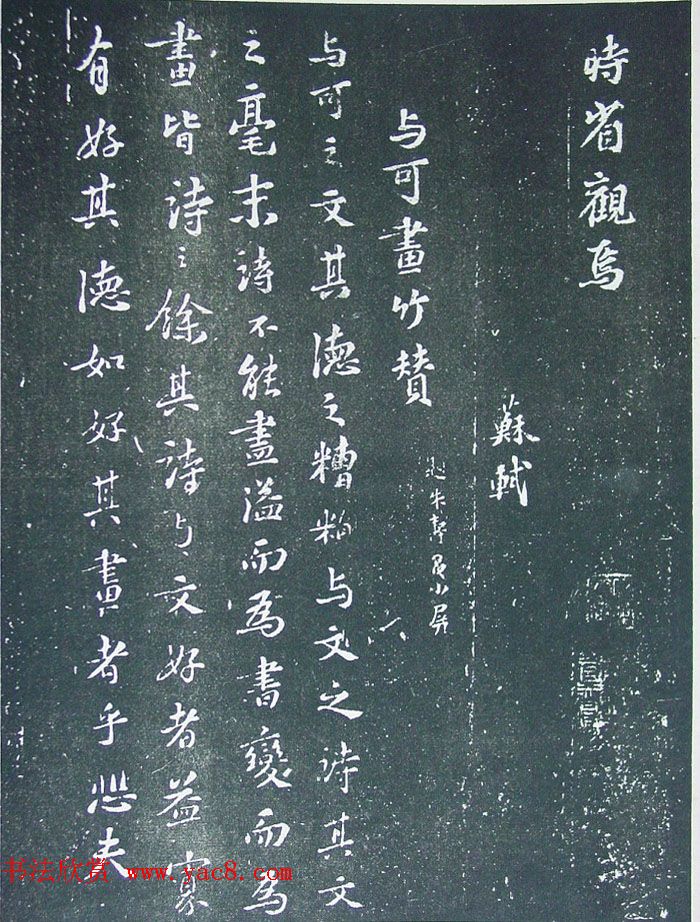 時省觀焉
蘇軾
与可畫竹賛
小屏
与可之文其德之糟粕与文之詩其文
之毫末詩不能盡溢而為書變而為
畫皆詩之餘其詩与文好者益寡
有好其德如好其畫者乎悲夫
书法欣赏 www.yac8.com